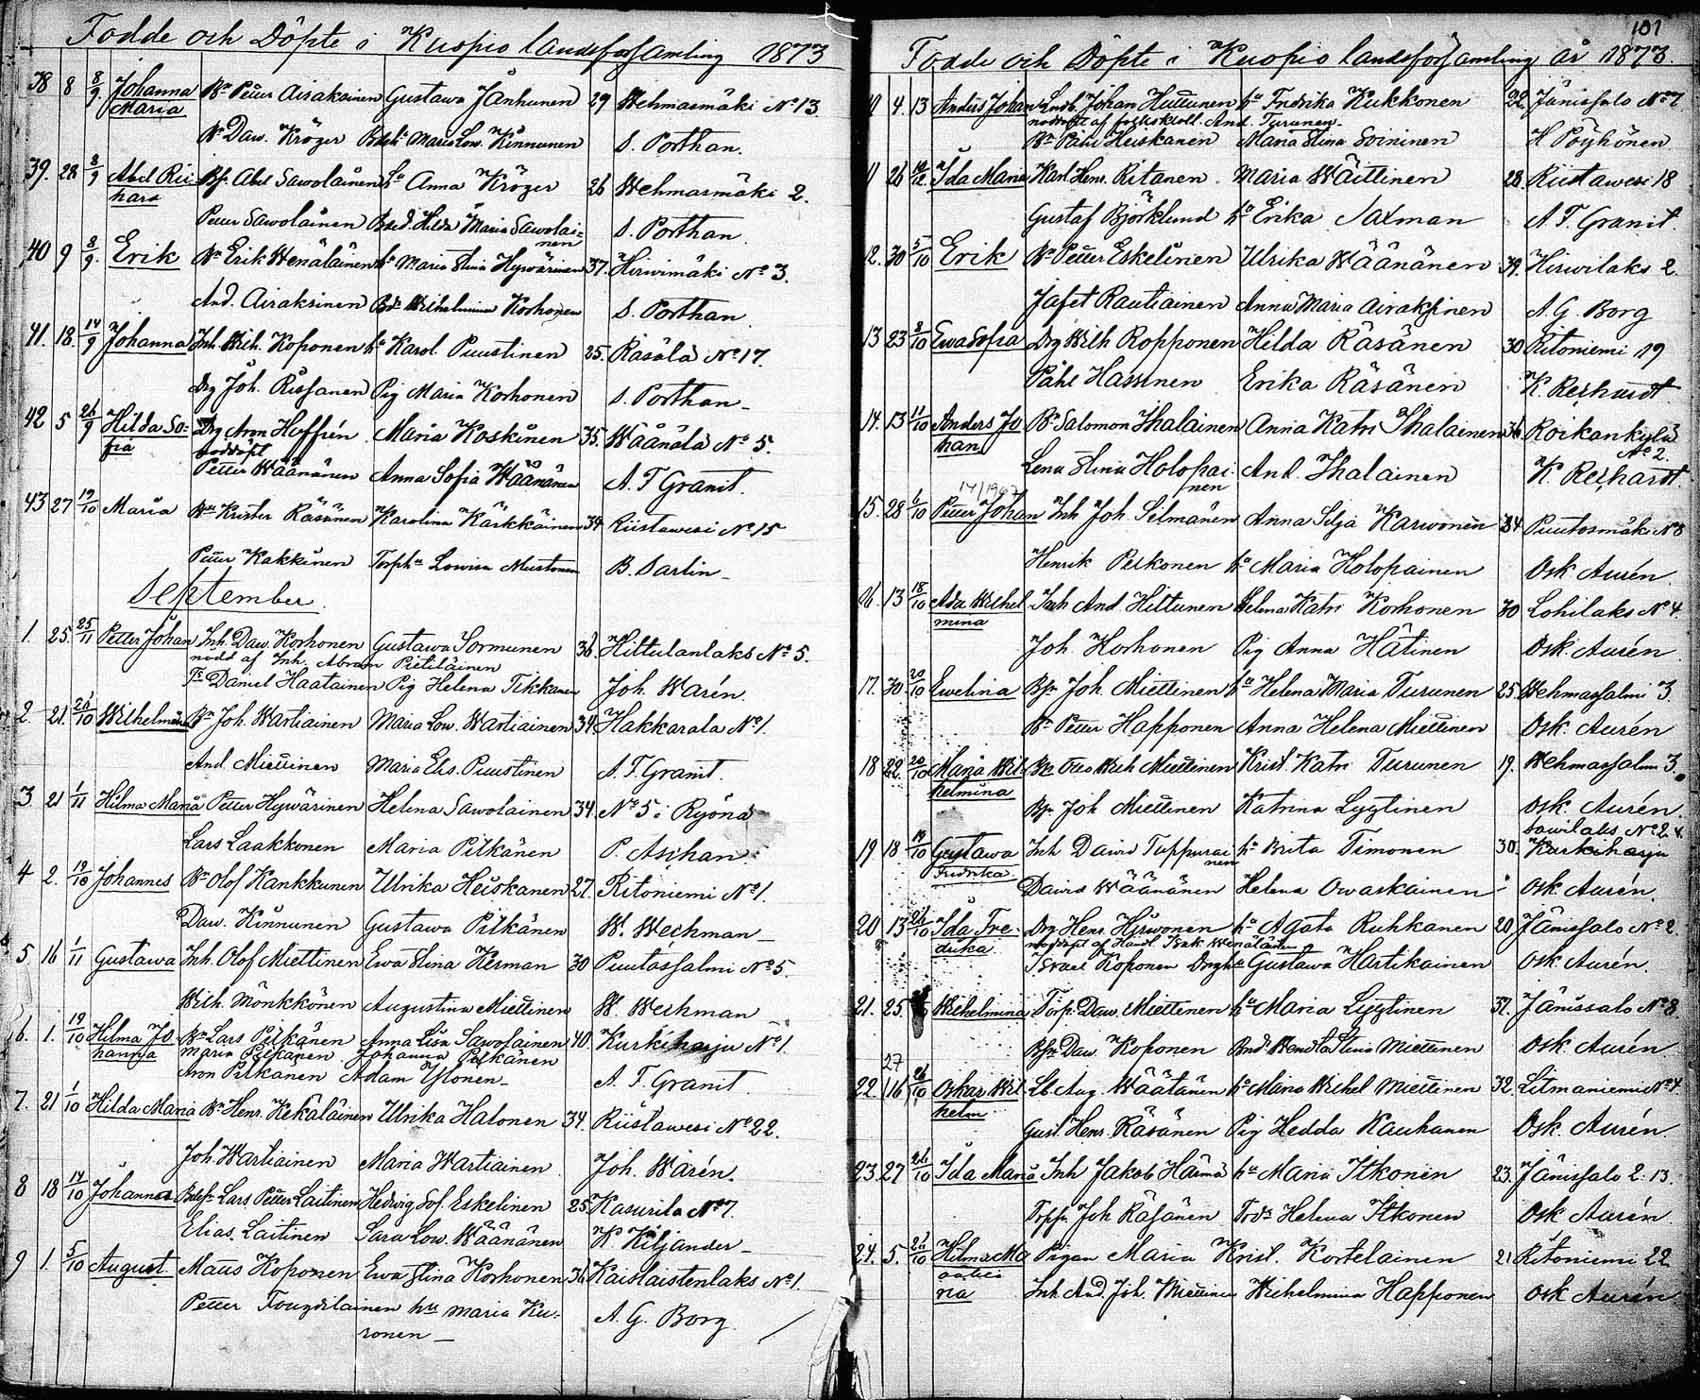 Födde och Döpte i Kuopio landsförsamling 1873
38 8 8/9 Johanna Bn Petter Airaksinen Gustawa Jänhunen 29 Wehmasmäki No 13
Maria
Bn Daw. Kröger Maria Low. Kinnunen S. Porthan.
39. 28 8/9 Abel Ric- Bfr Abel Sawolainen ha Anna Kröger 26 Wehmasmäki 2.
hard
Petter Sawolainen Hilda Maria Sawolai-
nen S. Porthan.
40 9 8/9. Erik Bn Erik Wenäläinen ha Maria Stina Hywärinen 37. Hirwimäki No 3.
And. Airaksinen Wilhelmina Korhonen S. Porthan.
41. 18. 14/9 Johanna Inh. Wilh. Koponen ha Karol. Puustinen 25. Räsälä No 17.
Drg Joh. Rissanen Pig Maria Korhonen S. Porthan
42 5 26/9 Hilda So- Drg Aron Hoffrén Maria Koskinen 35. Wäänälä No 5.
fia nöddöpt
Petter Wäänänen Anna Sofia Wäänänen A. F Granit.
43 27 19/10 Maria Bn Krister Räsänen Karolina Kärkkäinen 34. Riistawesi No 15
Petter Kakkinen Lowisa Mustonen B. Sarlin
September.
1. 25. 25/11 Petter Johan Inh. Daw. Korhonen Gustawa Sormunen 36. Hiltulanlaks No 5.
nödd af Inh. Abram Pietiläinen
Daniel Haatainen Pig Helena Tikkanen Joh. Warén.
2. 21. 26/10 Wilhelmina Bn Joh. Wartiainen Maria Low. Wartiainen 34. Hakkarala No 1.
And. Miettinen Maria Elis. Puustinen A. F. Granit.
3 21 1/11 Hilma Maria Petter Hywärinen Helena Sawolainen 34. No 5 i Ryönä
Lars Laakkonen Maria Pitkänen P. Aschan.
4 2. 19/10 Johannes Bn Olof Kankkunen Ulrika Heiskanen 27. Ritoniemi No 1.
Daw. Kinnunen Gustawa Pitkänen W. Weckman
5 16 1/11 Gustawa Inh. Olof Miettinen Ewa Stina Kerman 30 Puutossalmi No 5.
Wilh. Mönkkönen Augustina Miettinen W. Weckman
6. 1. 19/10 Hilma Jo Bn Lars Pitkänen Anna Lisa Sawolainen 40. Kurkiharju No 1.
hanna Maria Pitkänen Johanna Pitkänen
Aron Pitkänen Adam Ylönen A. F. Granit
7. 21 1/10 Hilda Maria Bn Henr. Kekäläinen Ulrika Halonen 34. Riistawesi No 22.
Joh. Wartiainen Maria Wartiainen Joh. Warén.
8 18 14/10 Johannes Lars Petter Laitinen Hedwig Sof. Eskelinen 25. Kasurila No 7.
Elias Laitinen Sara Low. Wäänänen K. Kiljander
9 1. 5/10 August Matts Koponen Ewa Stina Korhonen 36. Kaislaistenlaks No 1.
Petter hu Maria Ku-
ronen A. G. Borg.
101
Födde och Döpte i Kuopio landsförsamling år 1873.
4. 13 Anders Johan Johan Huttunen ha Fredrika Kukkonen 22. Jänissalo No 7
nöddöpt af And. Turunen
Bn Påhl Heiskanen Maria Stina Soininen H Pöyhönen
26 Ida Maria Karl Henr. Ritanen Maria Wäittinen 28. Riistawesi 18
Gustaf Björklund ha Erika Saxman A. F. Granit.
12. 30 5/10 Erik Bn Petter Eskelinen Ulrika Wäänänen 39. Hirwilaks 2.
Jafet Rautiainen Anna Maria Airaksinen A. G. Borg
13 23 Ewa Sofia Drg Wilh Ropponen Hilda Räsänen 30 Ritoniemi 19
Påhl Hassinen Erika Räsänen K. Reihardt.
14. 13 11/10 Anders Jo Bn Salomon Ihalainen Anna Katri Ihalainen 36 Roikankylä
han No 2.
Lena Stina Holopai-
nen And. Ihalainen K. Reihardt
15. 28 6/10 Petter Johan Inh Joh. Silmänen Anna Silja Karwonen 34 Puutosmäki No 8
Henrik Pelkonen ha Maria Holopainen Osk Aurén.
16. 13 18/10 Ada Wilhel And. Hiltunen Helena Katri Korhonen 30 Lohilaks No 4.
mina
Joh. Korhonen Pig Anna Hätinen Osk. Aurén
17. 30 20/10 Ewelina Bfr Joh. Miettinen ha Helena Maria Turunen 25. Wehmassalmi 3.
Bn Petter Happonen Anna Helena Miettinen Osk. Aurén
18 22. 20/10 Maria Wil- Otto Wilh Miettinen Krist. Katri Turunen 19. Wehmassalm 3.
helmina
Bfr Joh Miettinen Katrina Lyytinen Osk. Aurén.
Sawilaks No 2 4.
19 18 19/10 Gustawa Inh David Tuppurai- ha Brita Timonen 30. Kurkiharju
Fredrika nen
David Wäänänen Helena Owaskainen Osk. Aurén.
20 13 26/10 Ida Fre- Drg Henr. Hirwonen ha Agata Ruhkanen 20 Jänissalo No 2.
drika nöddöpt af
Israel Koponen Gustawa Hartikainen Osk. Aurén.
21. 25. Wilhelmina Torp. Daw. Miettinen ha Maria Lyytinen 37. Jänissalo No 8.
Daw. Koponen Wendla Stina Miettinen Osk. Aurén
27
22. 16 26/10 Oskar Wil- Aug. Wäätänen ha Maria Wilhel. Miettinen 32. Litmaniemi No 4.
helm
Gust. Henr. Räsänen Pig Hedda Kauhanen Osk. Aurén.
23. 27 26/10 Ida Maria Inh Jakob Härmä ha Maria Itkonen 23. Jänissalo 2. 13.
Joh Räsänen Helena Itkonen Osk Aurén.
24. 5. 26/10 Hilma Ma Pigan Maria Krist. Kortelainen 21 Ritoniemi 22
ria
Inh And. Joh. Miettinen Wilhelmina Happonen Osk Aurén